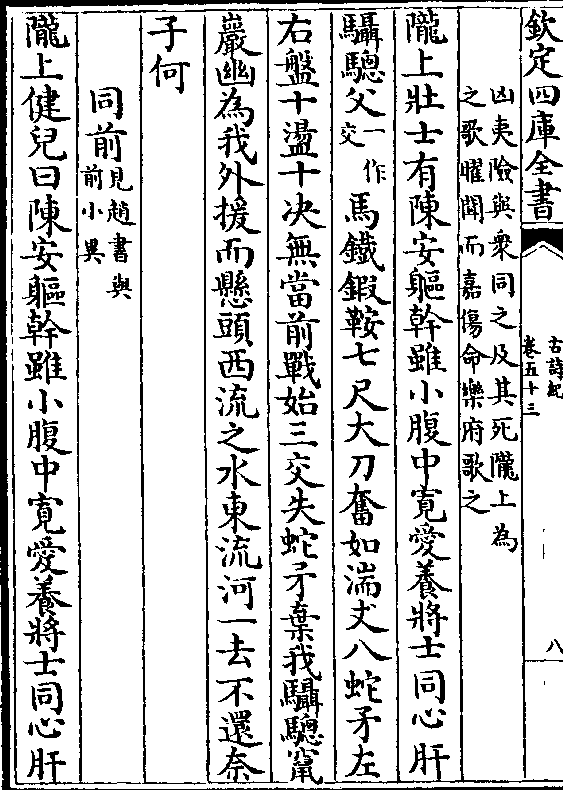 欽定四庫全書
古詩紀
卷五十三
八
凶夷險與衆同之及其死隴上為
之歌曜聞而嘉傷命樂府歌之
隴上壯士有陳安軀幹雖小腹中寛愛養將士同心肝
驑驄父一作交馬鐵鍜鞍七尺大刀奮如湍丈八蛇矛左
右盤十盪十决無當前戰始三交失蛇矛棄我驑驄竄
巖幽為我外援而懸頭西流之水東流河一去不還奈
子何
同前見趙書與前小異
隴上健兒曰陳安軀幹雖小腹中寛愛養將士同心肝